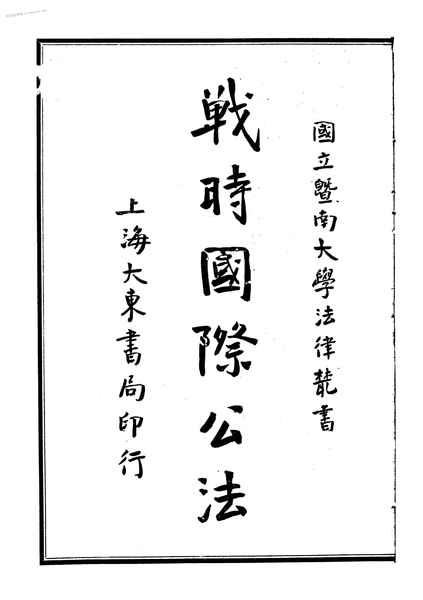 國立暨南大學法律叢書
戰時國際公法
上海大東書局印行